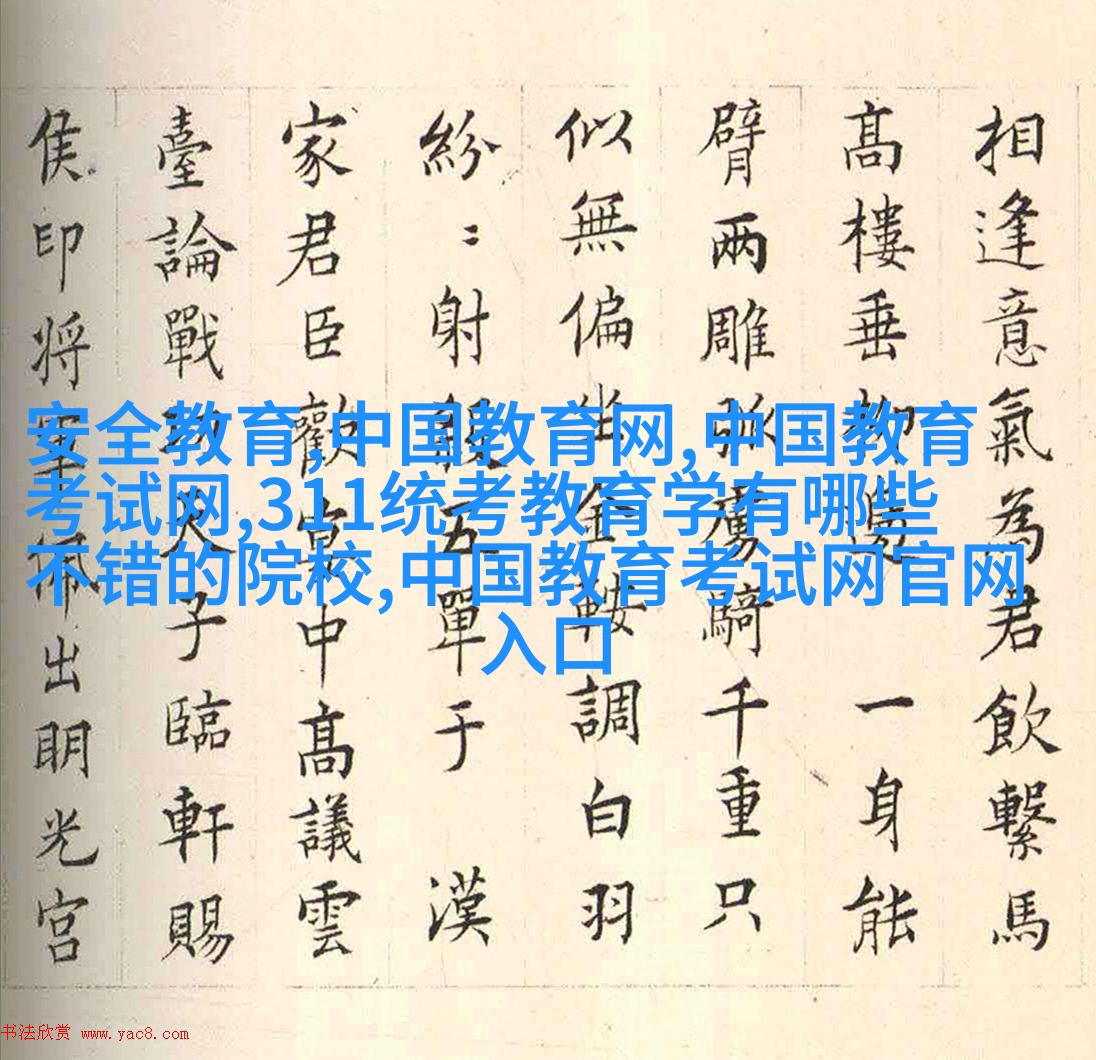 相逢意氣為君飲繫馬
髙樓垂柳邊 一身能
臂兩雕弧虜騎千重只
似無偏坐金鞍調白羽
紛〻射殺五單于 漢
家君臣歡宴中髙議雲
臺論戰功天子臨軒賜
侯印将軍佩出明光宮
安全教育,中国教育网,中国教育
考试网,311统考教育学有哪些
不错的院校,中国教育考试网官网
入口
书法欣赏 www.yac8.com